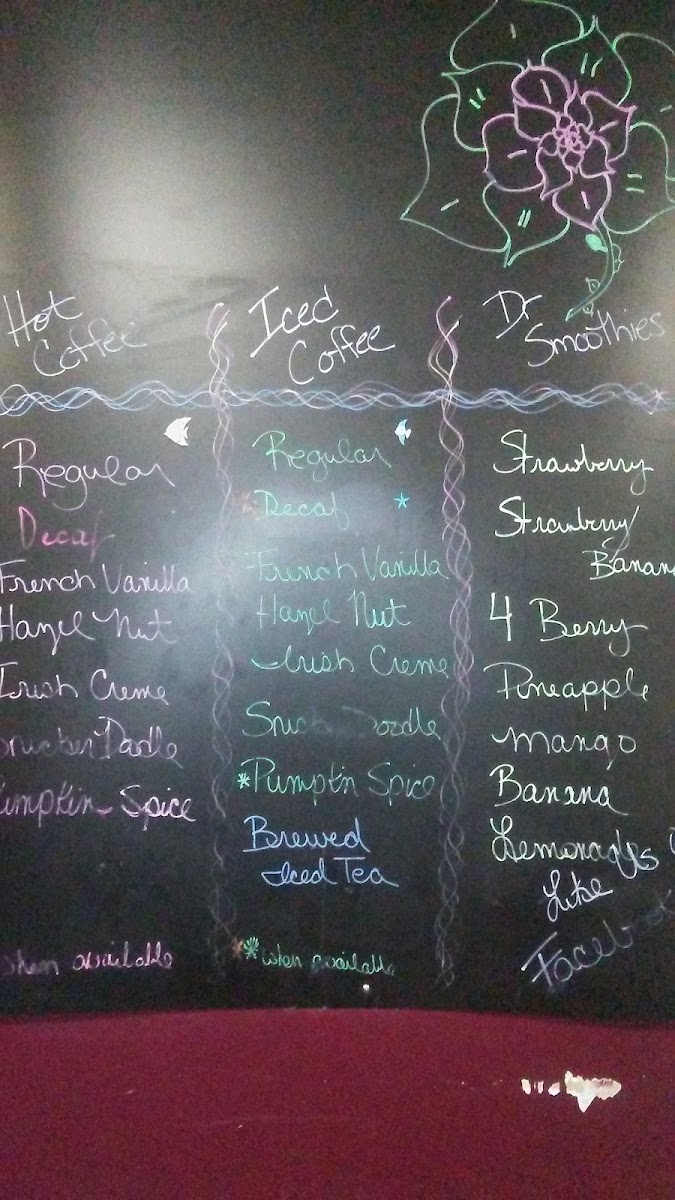 Hot
Coffee
Regular
Decaf
French Vanilla
Hazel Nut
Irish Creme
Snicker Doodle
Pumpkin Spice
when available
Iced
Coffee
Regular
* Decaf
French Vanilla
Hazel Nut
Irish Creme
Snicker Doodle
* Pumpkin Spice
Brewed
Iced Tea
** when available
Dr.
Smoothies
Strawberry
Strawberry
Banana
4 Berry
Pineapple
Mango
Banana
Lemonades
Like
Facebook